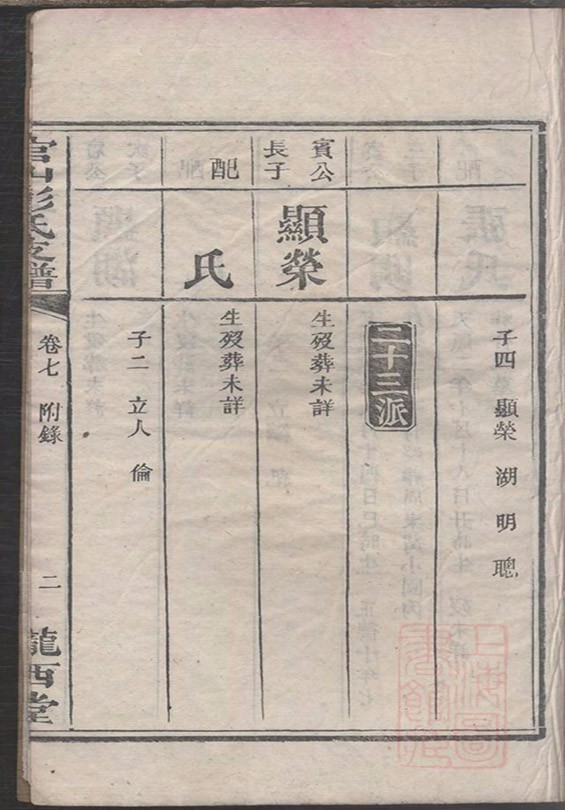 子四 顯榮 湖 明 聰
二十三派
賓公長子
顯榮
生歿葬未詳
配
氏
生歿葬未詳
子二 立人 倫
官山彭氏支譜
卷七 附錄
二
隴西堂
上海圖